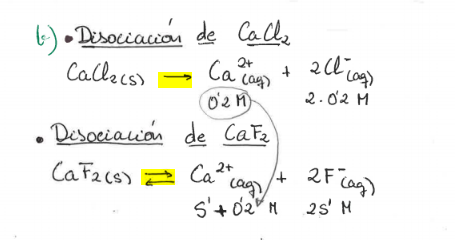 b) • Disociación de CaCl₂
CaCl₂(s) → Ca²⁺(aq) + 2Cl⁻(aq)
0'2 M 2·0'2 M
• Disociación de CaF₂
CaF₂(s) ⇌ Ca²⁺(aq) + 2F⁻(aq)
S' + 0'2 M 2S' M